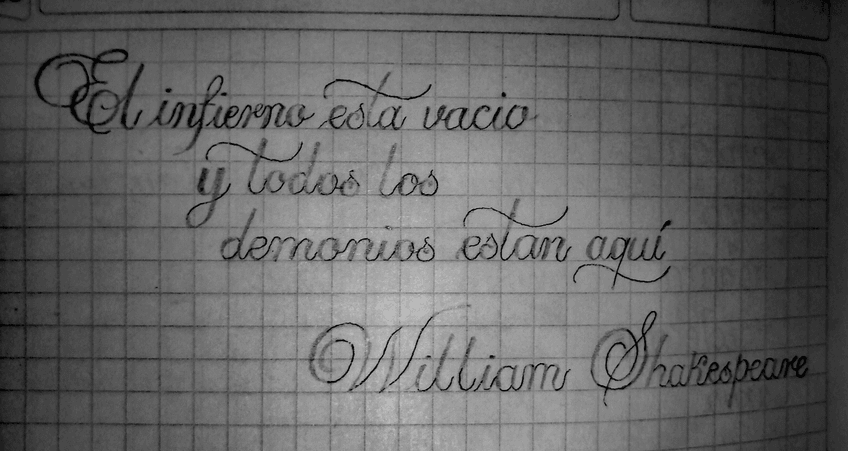 El infierno esta vacio
y todos los
demonios estan aquí
William Shakespeare